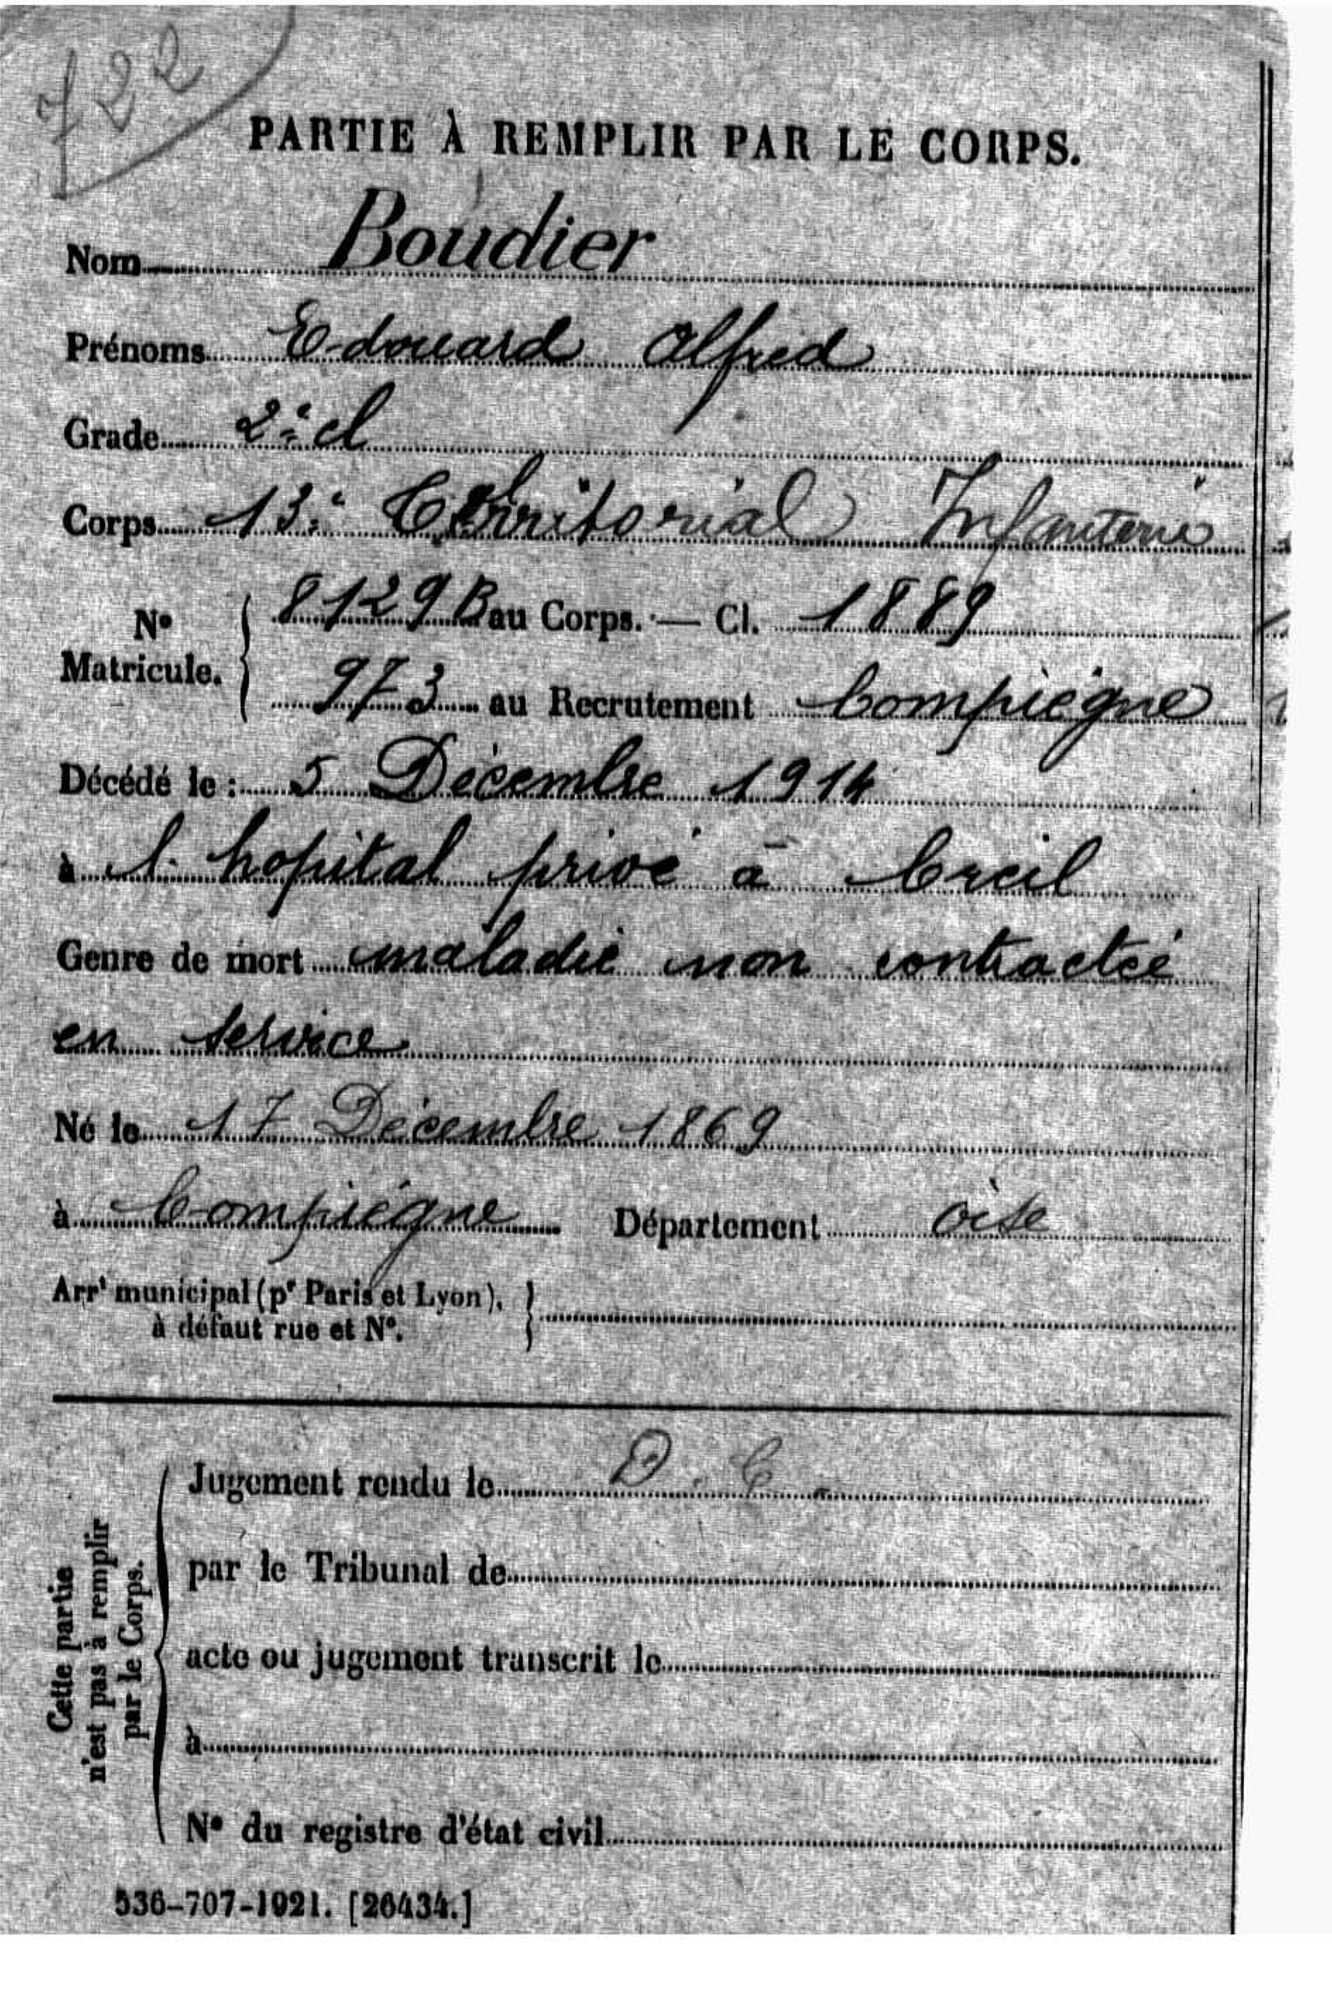 722
PARTIE À REMPLIR PAR LE CORPS.
Nom Boudier
Prénoms Edouard Alfred
Grade 2e cl
Corps 13e Territorial Infanterie
No Matricule. { 8129 B au Corps. — Cl. 1889
973 au Recrutement Compiégne
Décédé le : 5 Décembre 1914
à l'hopital privé à Creil
Genre de mort maladie non contractée
en service
Né le 17 Décembre 1869
à Compiégne Département Oise
Arrt municipal (pr Paris et Lyon), }
à défaut rue et No.
Cette partie
n'est pas à remplir
par le Corps.
Jugement rendu le D. C.
par le Tribunal de
acte ou jugement transcrit le
à
No du registre d'état civil
536-707-1921. [26434.]